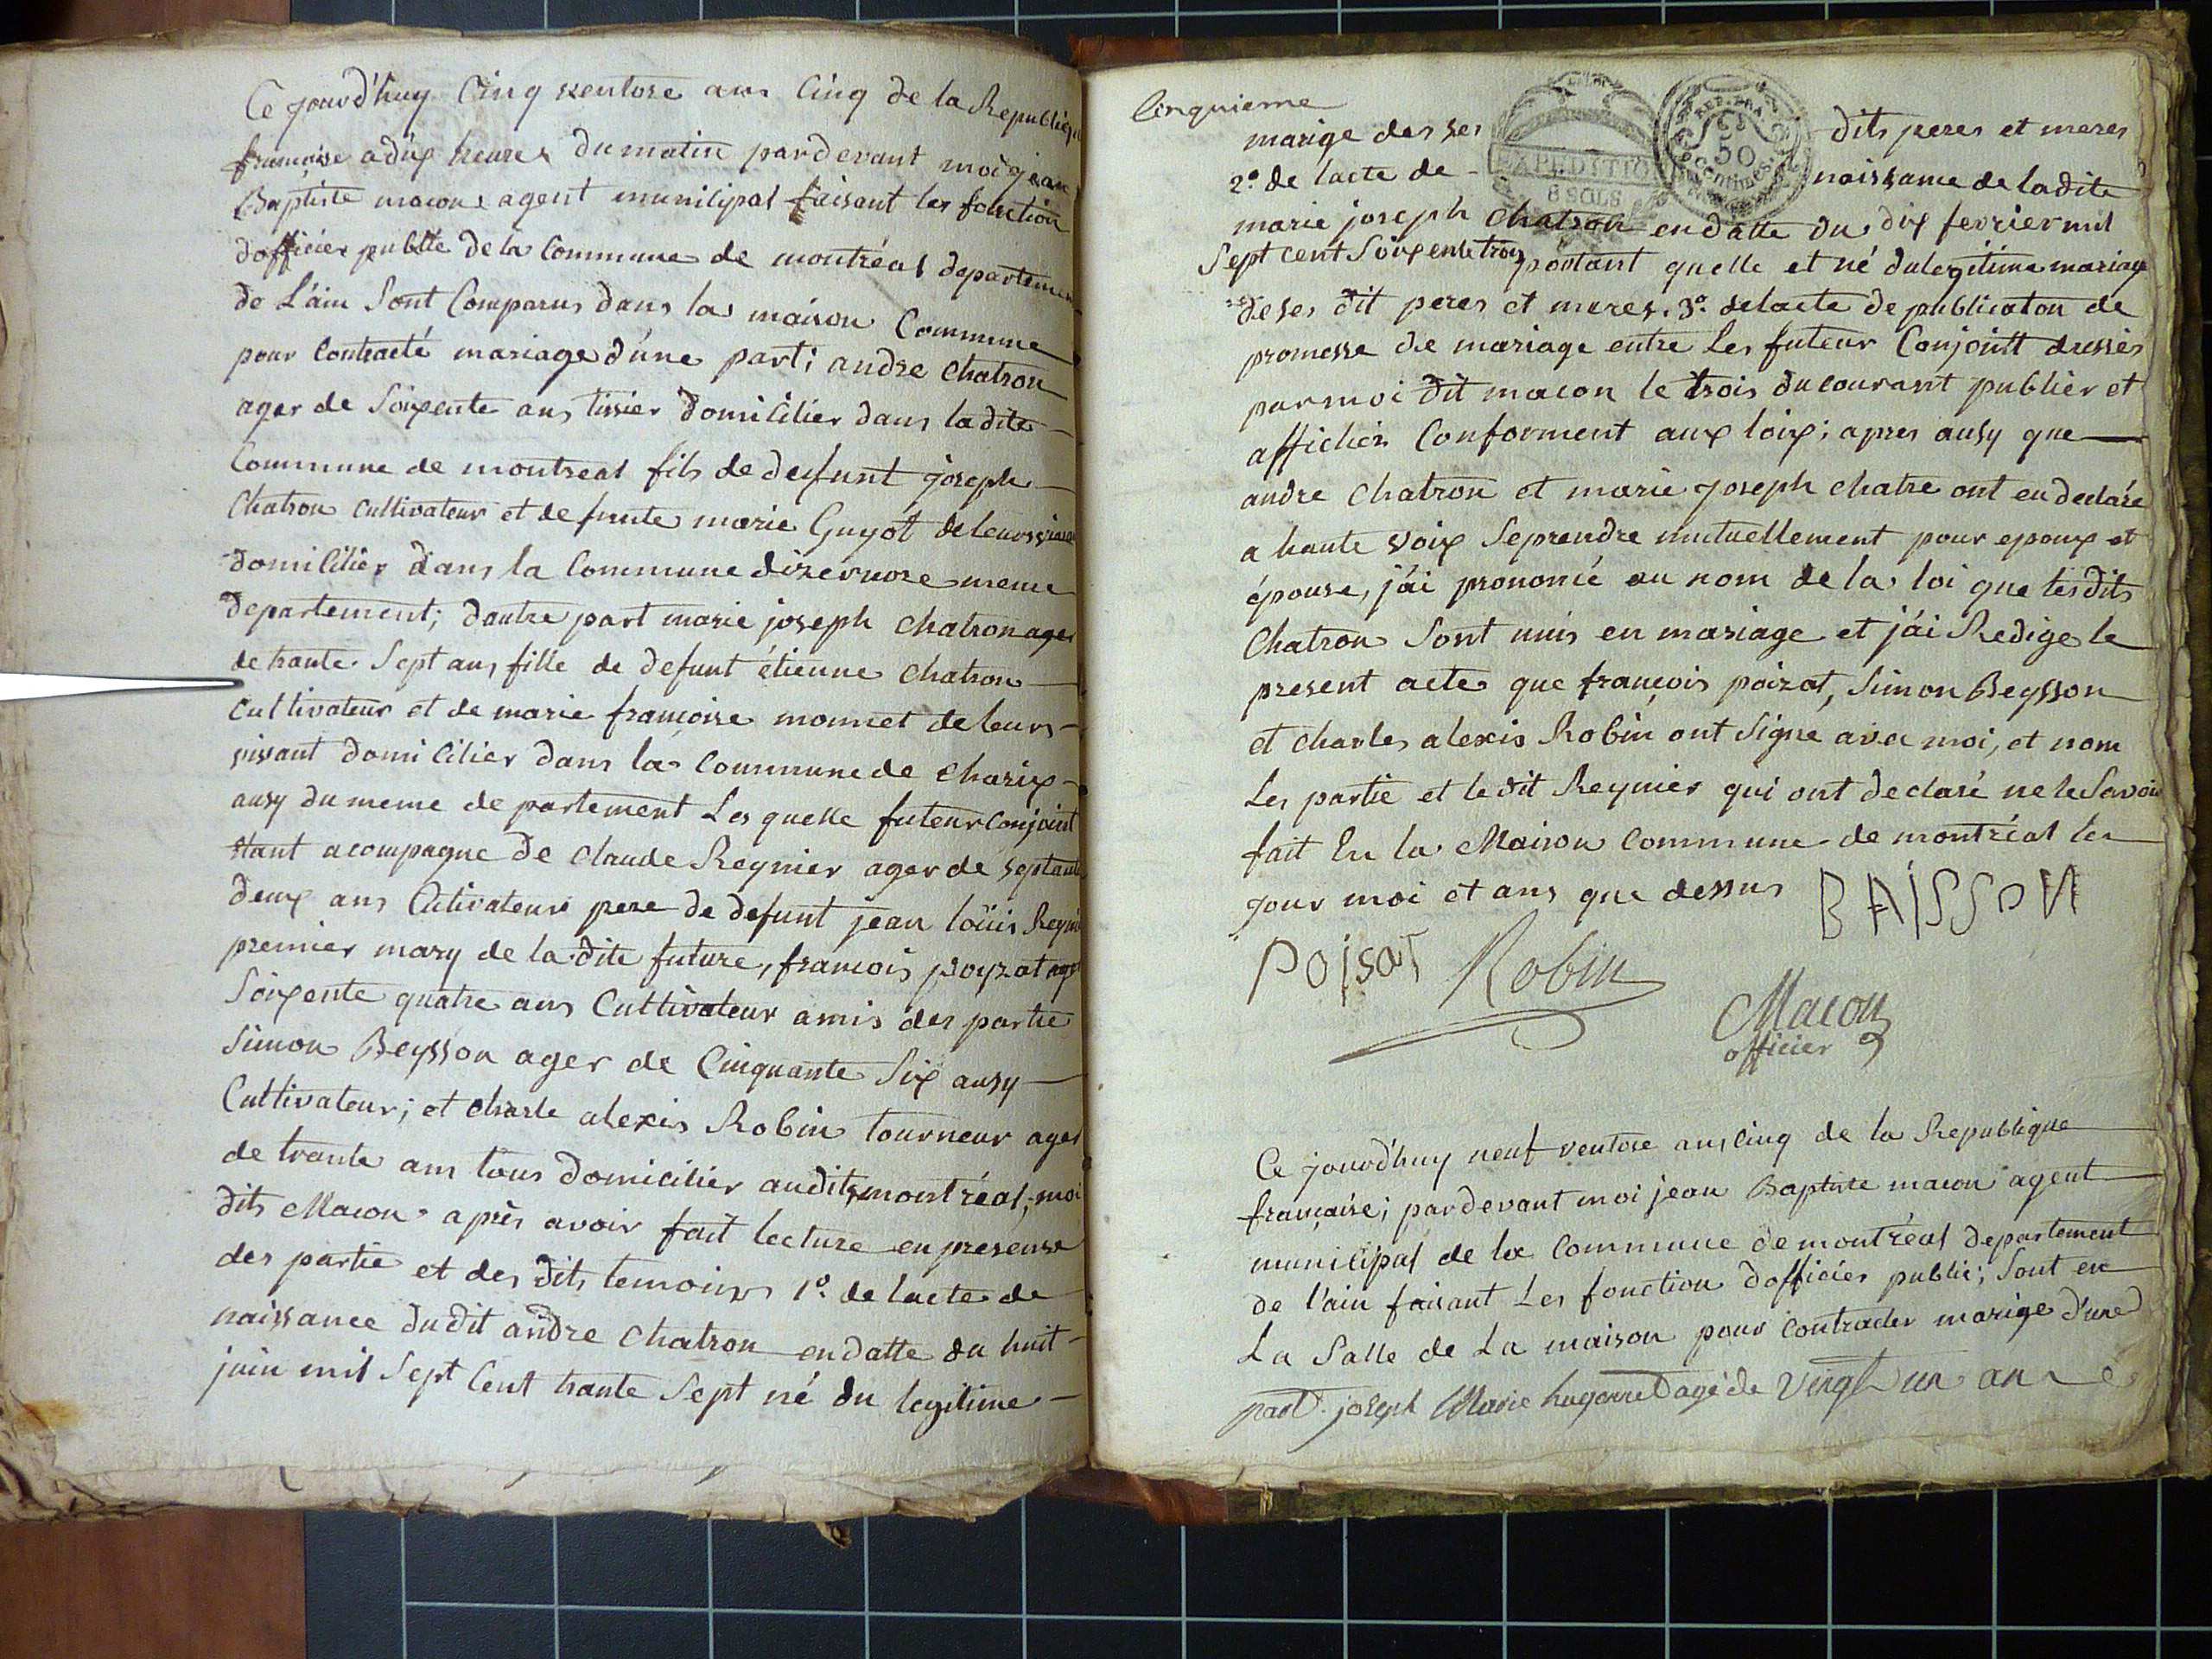 Ce jourd'huy Cinq ventose ans Cinq de la Republiq
françoise a dix heures du matin pardevant moi jean
Baptiste macon agent municipal faisant les fonction
dofficier public de la Commune de montréal departemen
de L'ain Sont Comparus dans la maison Commune
pour Contracté mariage d'une parti andre Chatron
ager de Soixente ans tissier domicilier dans la dite
Commune de montreal fils de defunt joseph
Chatron Cultivateur et defunte marie Guyot de leurs vivant
domicilier dans la Commune dizernore meme
departement; dautre part marie joseph Chatron ager
de trante Sept ans, fille de defunt étienne Chatron
Cultivateur et de marie françoise monnet de leurs
vivant domicilier dans la Commune de Charix
ausy du meme departement Les quelle futeur Conjoint
etant acompagne de Claude Reynier ager de septante
deux ans Cultivateur pere de defunt jean loüis Reynie
premier mary de la dite future, francois poyzat ager
Soixente quatre ans Cultivateur amis des partie
Simon Beysson ager de Cinquante Six ausy
Cultivateur; et Charle alexis Robin tourneur ager
de trante ans tous domicilier audit montréal; moi
dits Macon après avoir fait lecture en presense
des partie et des dits temoins 1º. de lacte de
naissance dudit andre Chatron en datte du huit
juin mil Sept Cent trante Sept né du legitime
Cinquieme
marige des ses dits peres et meres
EXPEDITIO
8 SOLS
REP. FRA.
50
Centimes.
2º. de lacte de naissance de la dite
marie joseph Chatron en datte du dix fevrier mil
Sept cent Soixente trois portant quelle et né du legitime mariage
de ses dit peres et meres. 3º. de lacte de publicaton de
promesse de mariage entre Les futeur Conjointt dressés
par moi dit macon le trois du courant publiér et
affichér Conforment aux loix; apres ausy que
andre Chatron et marie joseph chatre ont eu declaré
a haute voix Se prendre mutuellement pour epoux et
épouse, j'ai prononcé au nom de la loi que les dits
Chatron Sont unis en mariage et j'ai Redige le
present acte que françois poizat, Simon Beysson
et Charles alexis Robin ont Signe avec moi, et nom
Les partie et le dit Reynier qui ont declaré ne le Savoir
fait En la Maison Commune de montréal les
jour moi et ans que dessus BAISSON
POISAT Robin
Macon
officier
Ce jourd'huy neuf ventose ans Cinq de la Republique
française; pardevant moi jean Baptiste macon agent
municipal de la Commune de montréal departement
de l'ain faisant Les fonction dofficier public; Sont en
La Salle de La maison pour Contracter marige d'une
part. joseph Marie hugonnet agé de vingt un an